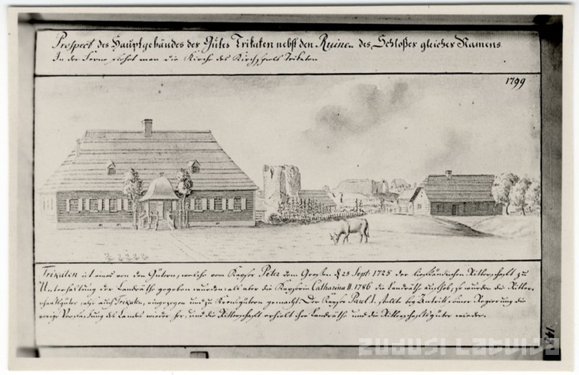 Prospect des Hauptgebäudes der Gutes Trikaten nebst den Ruinen des Schloßes gleicher Namens
In der Ferne siehet man die Kirche des Kirchspiels Trikaten
1799
Trikaten ist eines von den Gütern, welche vom Kayser Peter dem Großen d 25 Sept. 1725 der livländischen Ritterschaft zu
Unterhaltung der Landräthe gegeben wurden als aber die Kayserin Catharina II 1786 die Landräthe aufhob, so wurden die Ritter
auch Trikaten, eingezogen und zu Krongütern gemacht. Der Kayser Paul I. stellte bey Antritt seiner Regierung die
vorige Verfassung des Landes wieder her, und die Ritterschaft erhielt ihre Landräthe und die Ritterschaftsgüter wieder.
14
zudusi latvija